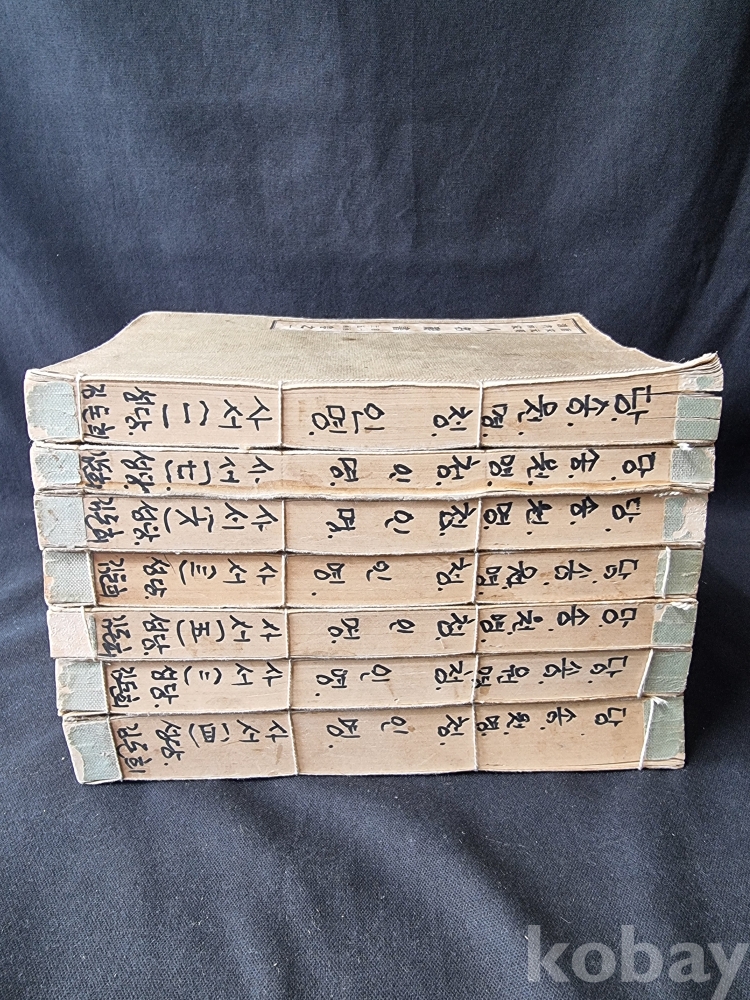 당.송.원.명. 청 인명. 사서(一) 성당. 김돈희
당.송.원.명. 청. 인명. 사서(七) 성당. 김돈희
당.송.원.명. 청. 인명. 사서(六) 성당. 김돈희
당.송.원.명. 청. 인명. 사서 성당 김돈희
당.송.원.명. 청. 인명. 사서(五) 성당. 김돈희
당.송.원.명. 청. 인명. 사서 성당. 김돈희
당.송.원.명. 청. 인명. 사서(四) 성당. 김돈희
kobay